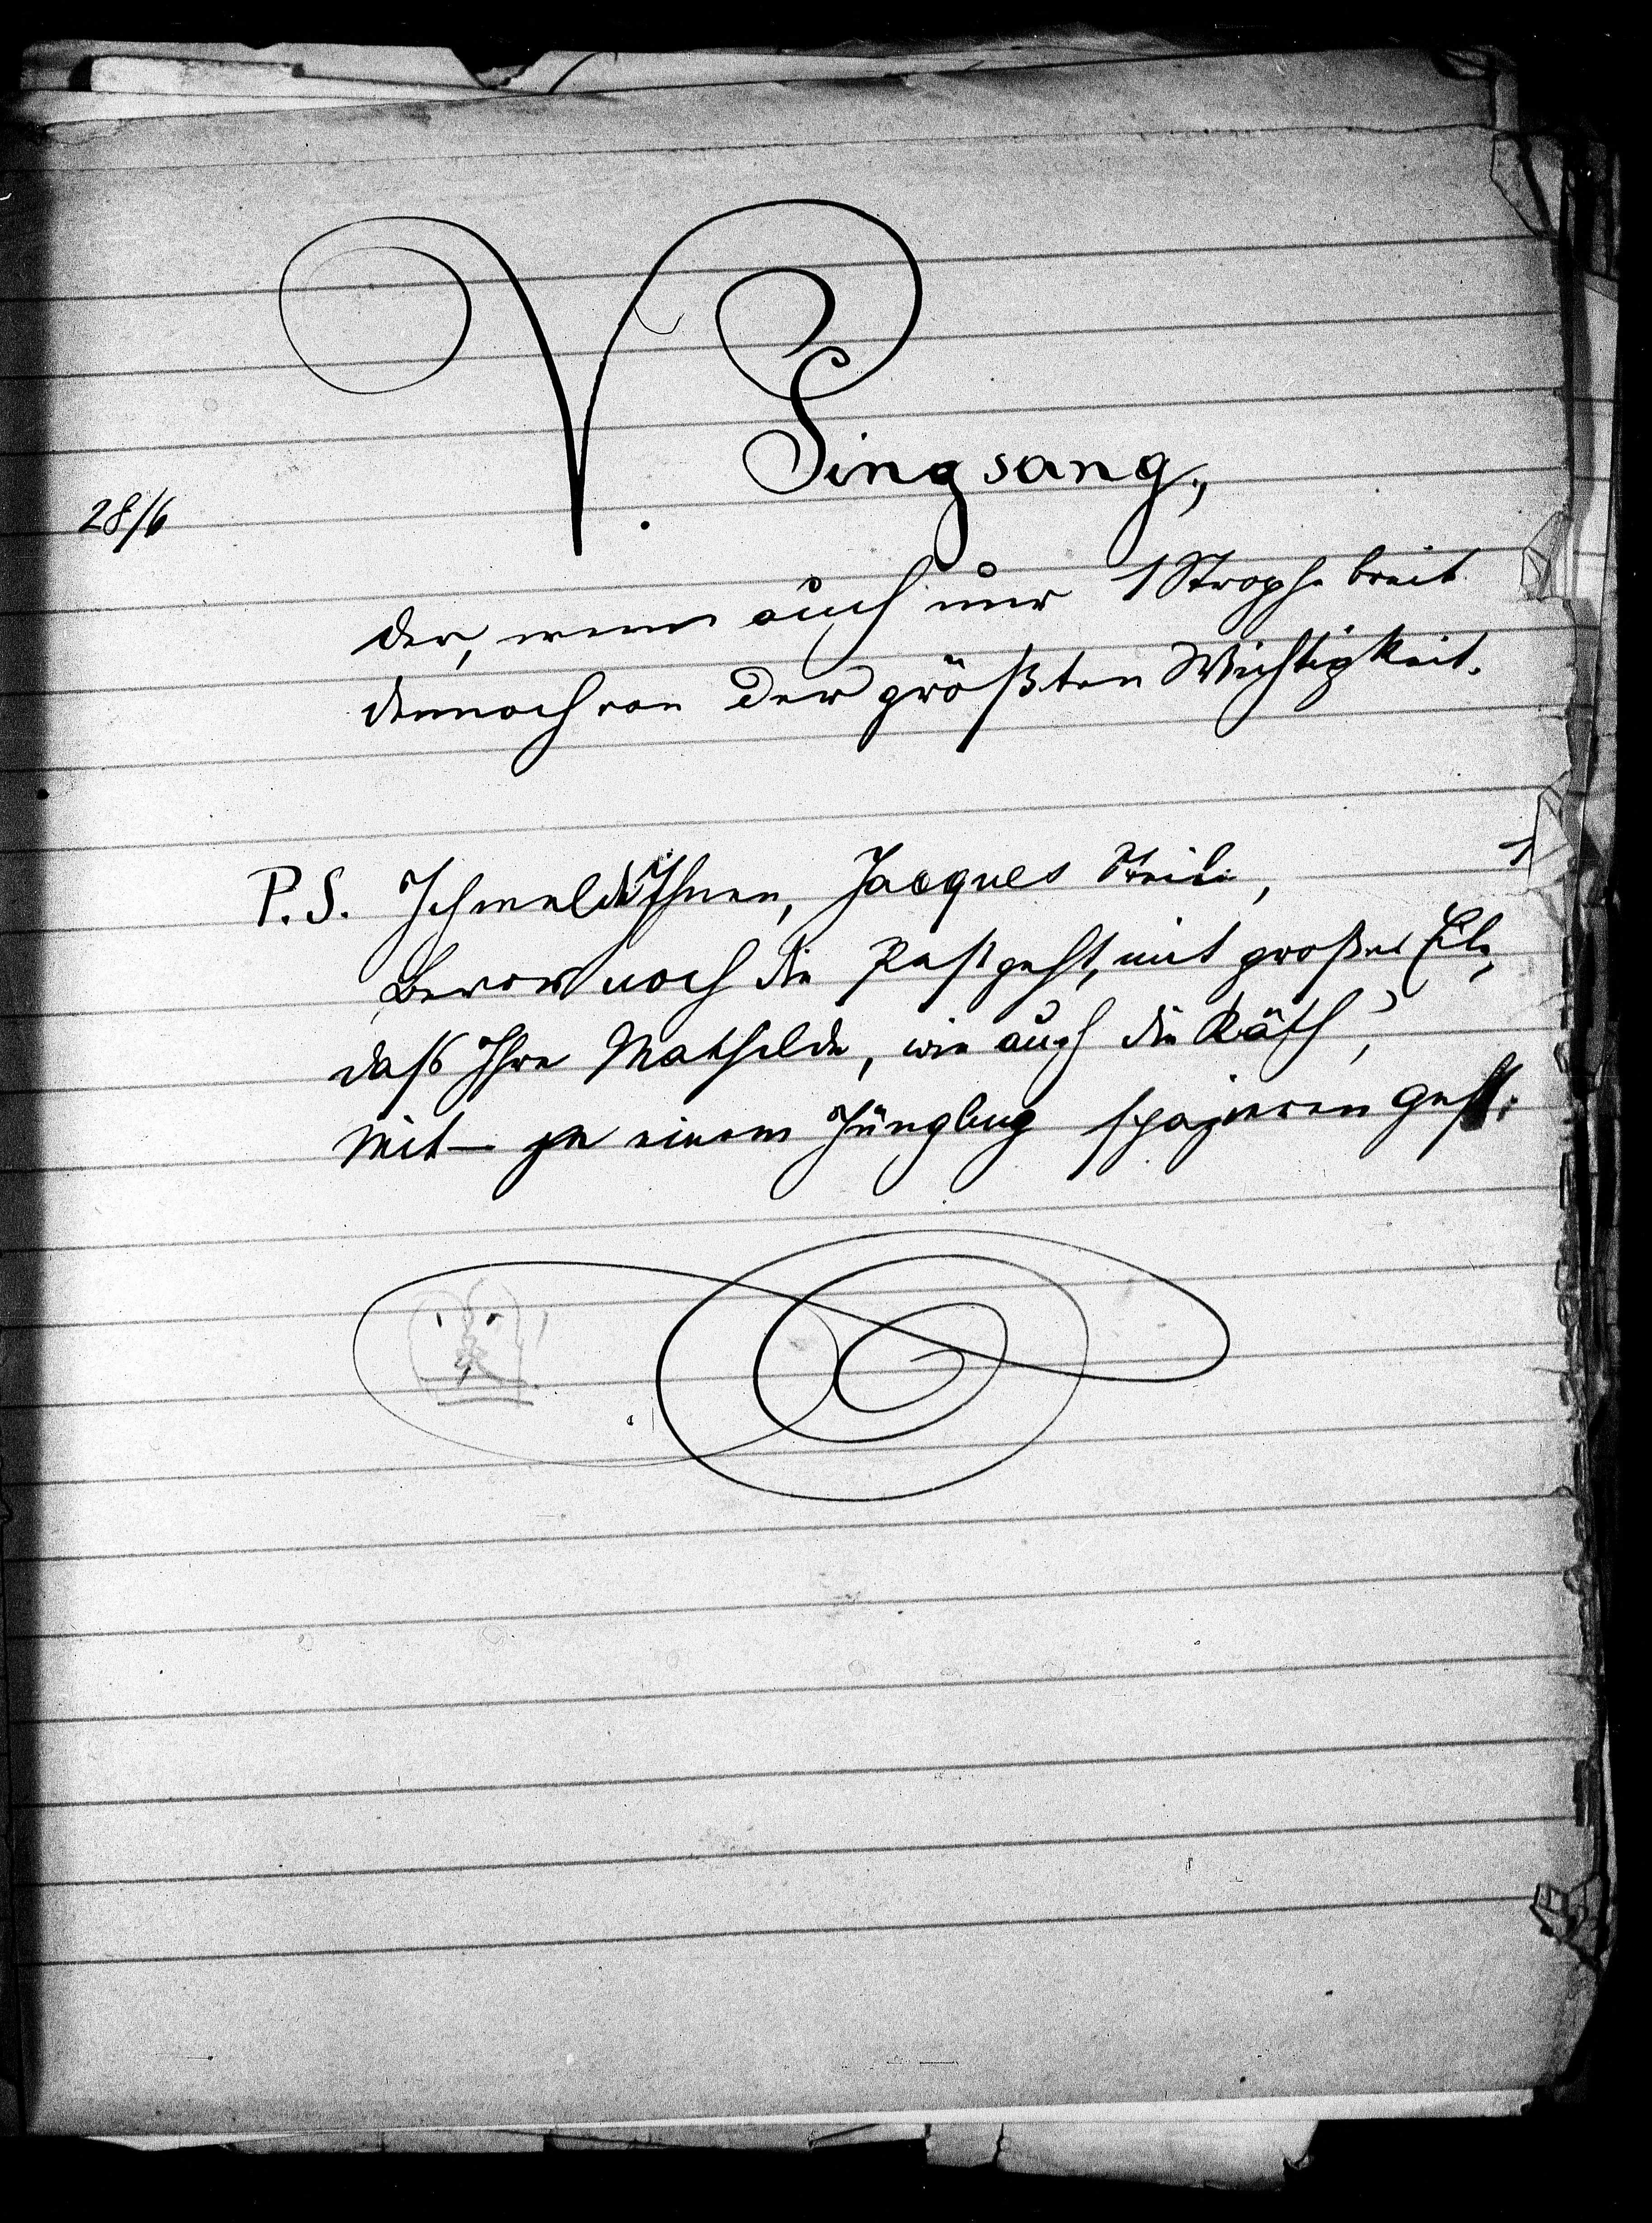 V. Singsang,
28/6
der, wenn auch nur 1 Strophe breit
dennoch von der größten Wichtigkeit.
P.S. Ich melde Ihnen, Jacques Steile,
Bevor noch die Post geht, mit großer Eile,
daß Ihre Mathilde, wie auch die Käth,
Mit einem Jüngling spazieren geht.